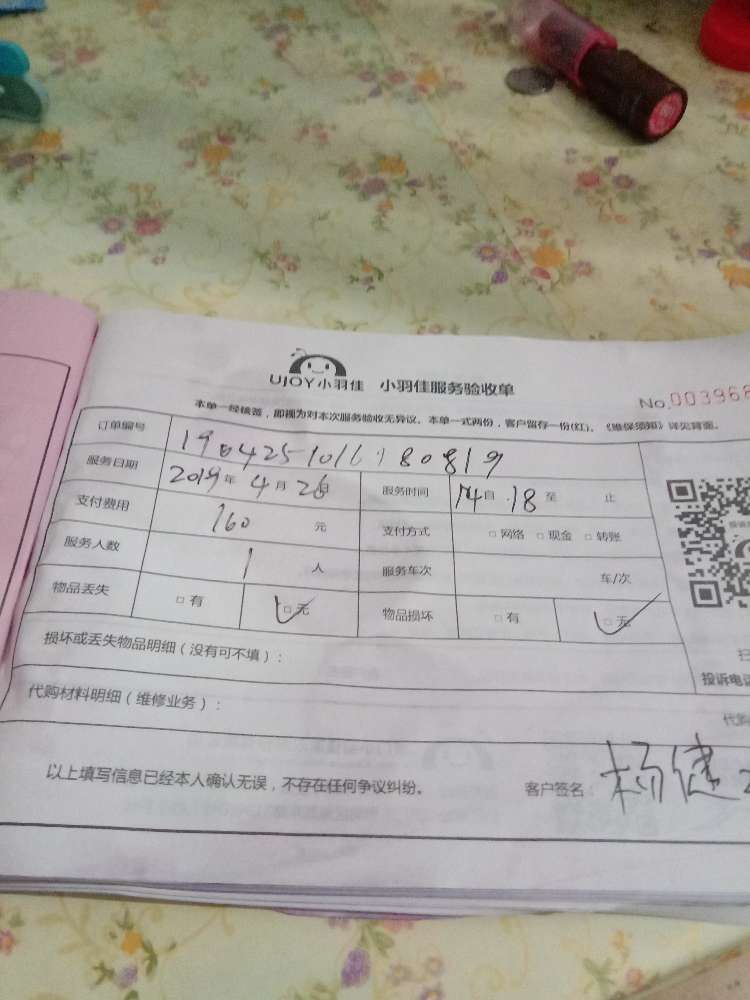 UJOY小羽佳 小羽佳服务验收单
No.003968
本单一经核签，即视为对本次服务验收无异议。本单一式两份，客户留存一份(红)。《维保须知》详见背面。
订单编号 1904251016180819
服务日期 2019年4月26日 服务时间 14自 18至 止
支付费用 160元 支付方式 □网络 □现金 □转账
服务人数 1人 服务车次 车/次
物品丢失 □有 □无 物品损坏 □有 □无
损坏或丢失物品明细（没有可不填）：
投诉电话
代购材料明细（维修业务）：
代购
以上填写信息已经本人确认无误，不存在任何争议纠纷。 客户签名：杨健